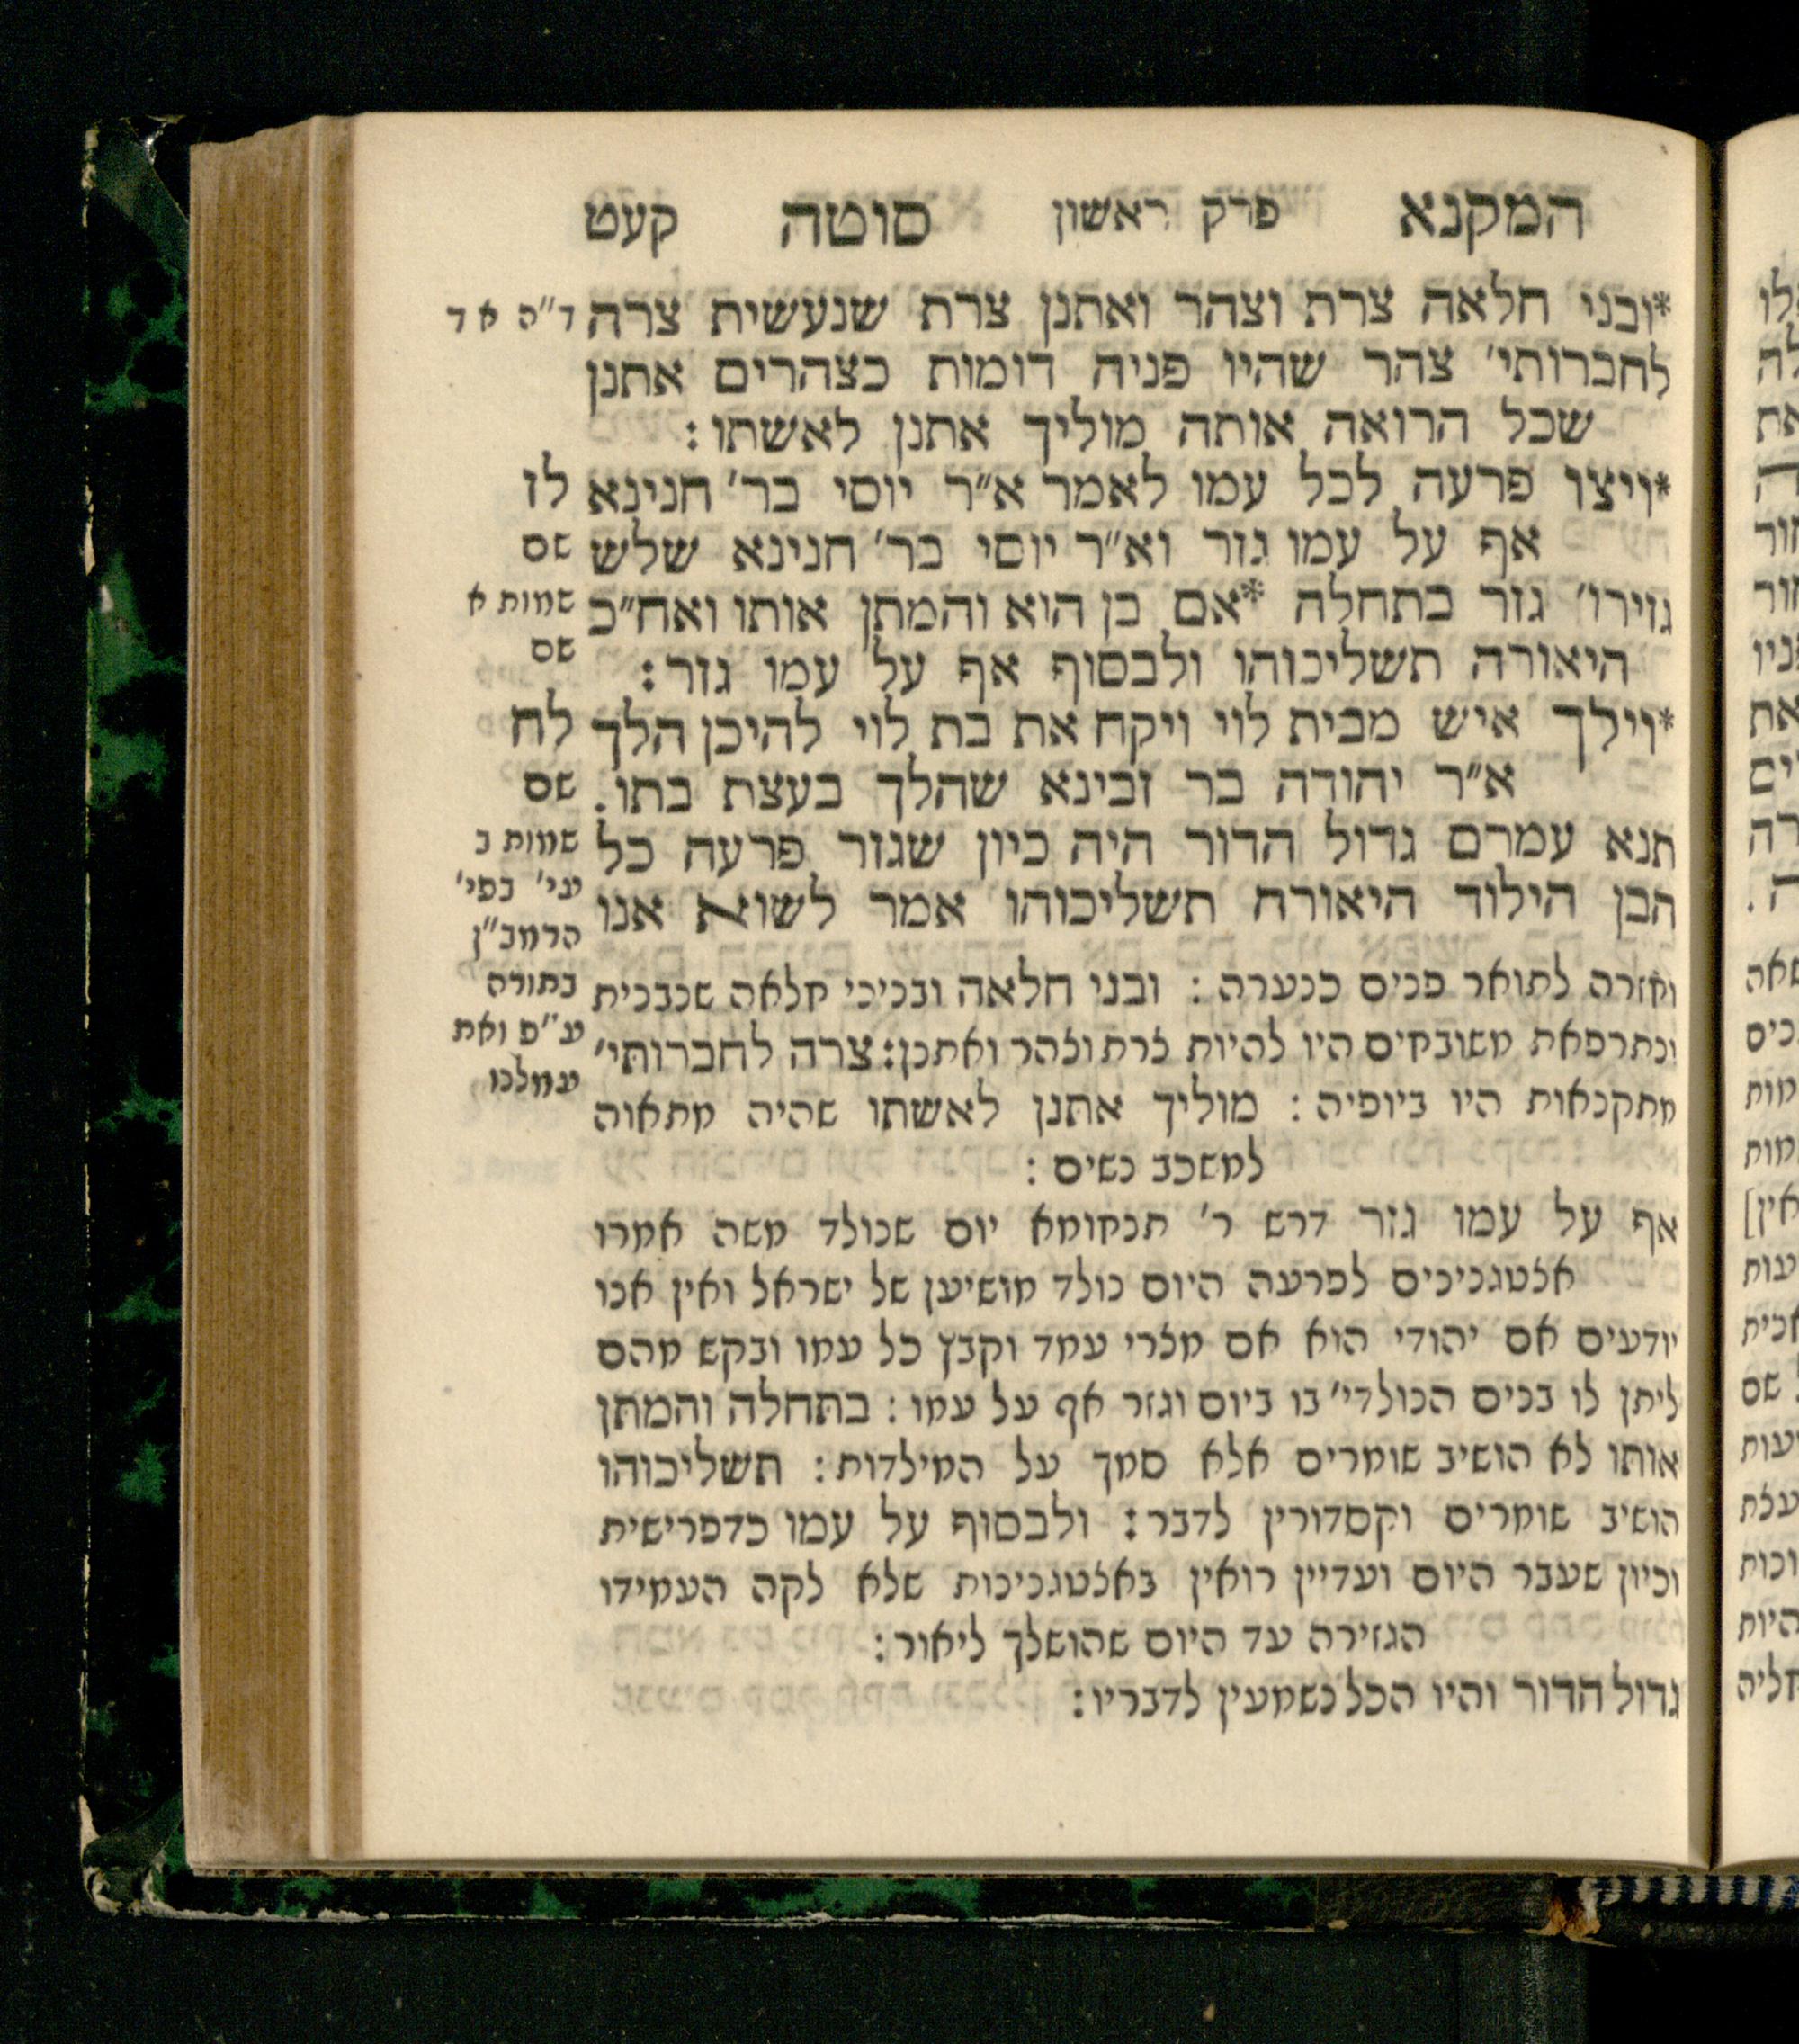 המקנא פרק ראשון סוטה קעט
*ובני חלאה צרת וצהר ואתנן צרת שנעשית צרה
לחברותי' צהר שהיו פניה דומות כצהרים אתנן
שכל הרואה אותה מוליך אתנן לאשתו:
*ויצו פרעה לכל עמו לאמר א"ר יוסי בר' חנינא
אף על עמו גזר וא"ר יוסי בר' חנינא שלש
גזירו' גזר בתחלה *אם בן הוא והמתן אותו ואח"כ
היאורה תשליכוהו ולבסוף אף על עמו גזר:
*וילך איש מבית לוי ויקח את בת לוי להיכן הלך
א"ר יהודה בר זבינא שהלך בעצת בתו.
תנא עמרם גדול הדור היה כיון שגזר פרעה כל
הבן הילוד היאורה תשליכוהו אמר לשוא אנו
וחזרה לתואר פנים כנערה: ובני חלאה ובניני חלאה שנבנית
ונתרפאת משובחים היו להיות צרת וצהר ואתנן: צרה לחברותי'
מתקנאות היו ביופיה: מוליך אתנן לאשתו שהיה מתאוה
למשכב נשים:
אף על עמו גזר דרש ר' תנחומא יום שנולד משה אמרו
אצטגנינים לפרעה היום נולד מושיען של ישראל ואין אנו
יודעים אם יהודי הוא אם מצרי עמד וקבץ כל עמו ובקש מהם
ליתן לו בנים הנולדי' בו ביום וגזר אף על עמו: בתחלה והמתן
אותו לא הושיב שומרים אלא סמך על המילדות: תשליכוהו
הושיב שומרים וקסדורין לדבר: ולבסוף על עמו כדפרישית
וכיון שעבר היום ועדיין רואין באצטגנינות שלא לקה העמידו
הגזירה עד היום שהושלך ליאור:
גדול הדור והיו הכל נשמעין לדבריו:
ד"ה א ד
לז
שם
שמות א
שם
לח
שם
שמות ב
עי' בפי'
הרמב"ן
בתורה
ע"פ ואת
עמלנו